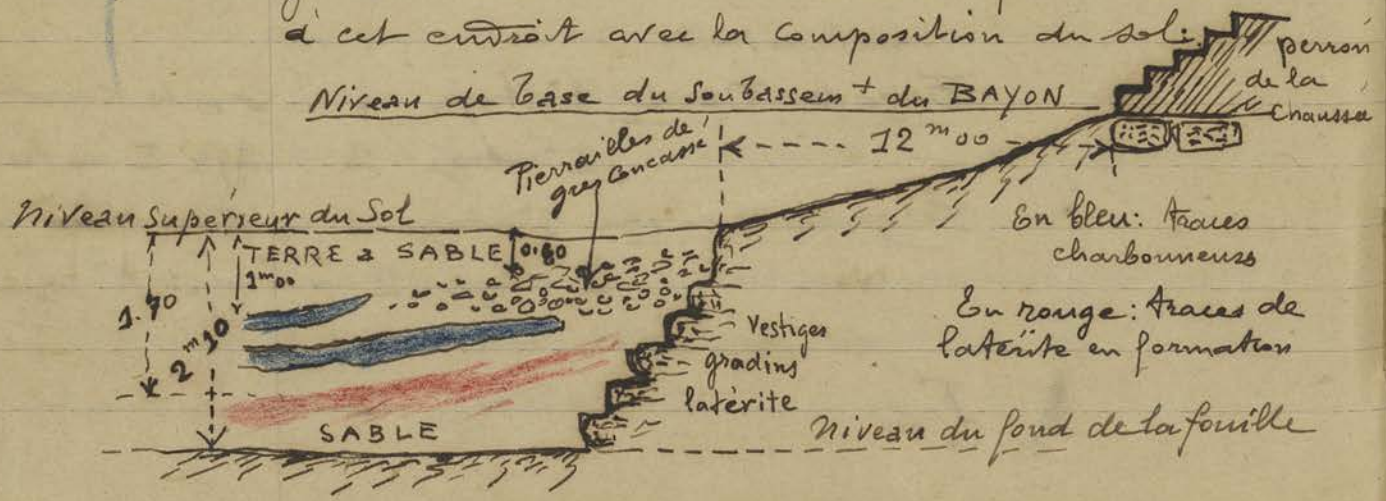 à cet endroit avec la Composition du sol:
perron
de la
Chaussée
Niveau de base du Soubassemt du BAYON
12 m 00
Pierrailles de
grès concassé
Niveau Supérieur du Sol
TERRE & SABLE
0.60
1m00
1.70
2m10
En bleu: traces
charbonneuses
En rouge: traces de
latérite en formation
Vestiges
gradins
latérite
SABLE
Niveau du fond de la fouille